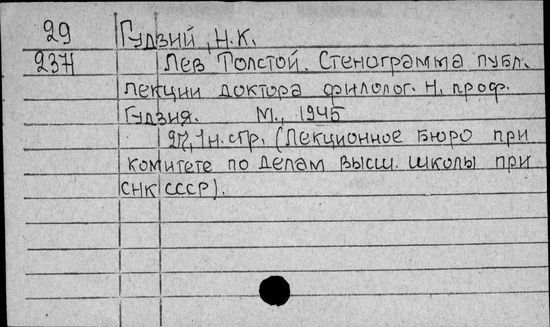 29 Гудзий, Н.К.
237 Лев Толстой. Стенограмма публ.
лекции доктора филолог. н. проф.
Гудзия. М., 1945
27, 1н. стр. (Лекционное бюро при
комитете по делам высш. школы при
СНК СССР).